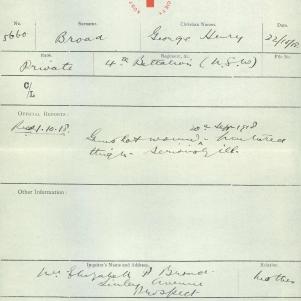 No. Surname. Christian Names. Date.
5660 Broad George Henry 22/10/18
Rank. Regiment, &c. File No.
Private 4th Battalion (N.S.W)
C/L
OFFICIAL REPORTS:
1.10.18. 20th Sept 1918
Gunshot wound fractured
thigh - seriously ill.
Other Information:
Inquirer's Name and Address. Relation
Mrs Elizabeth P Broad. Mother
Avenue
Prospect